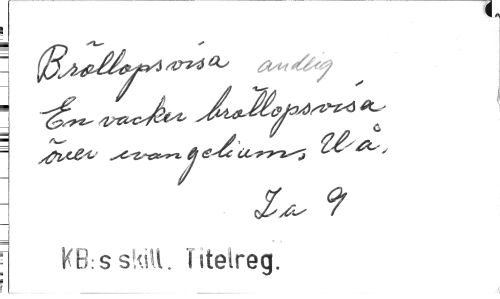 Bröllopsvisa andlig
En vacker bröllopsvisa
över evangelium, U å.
Za 9
KB:s skill. Titelreg.